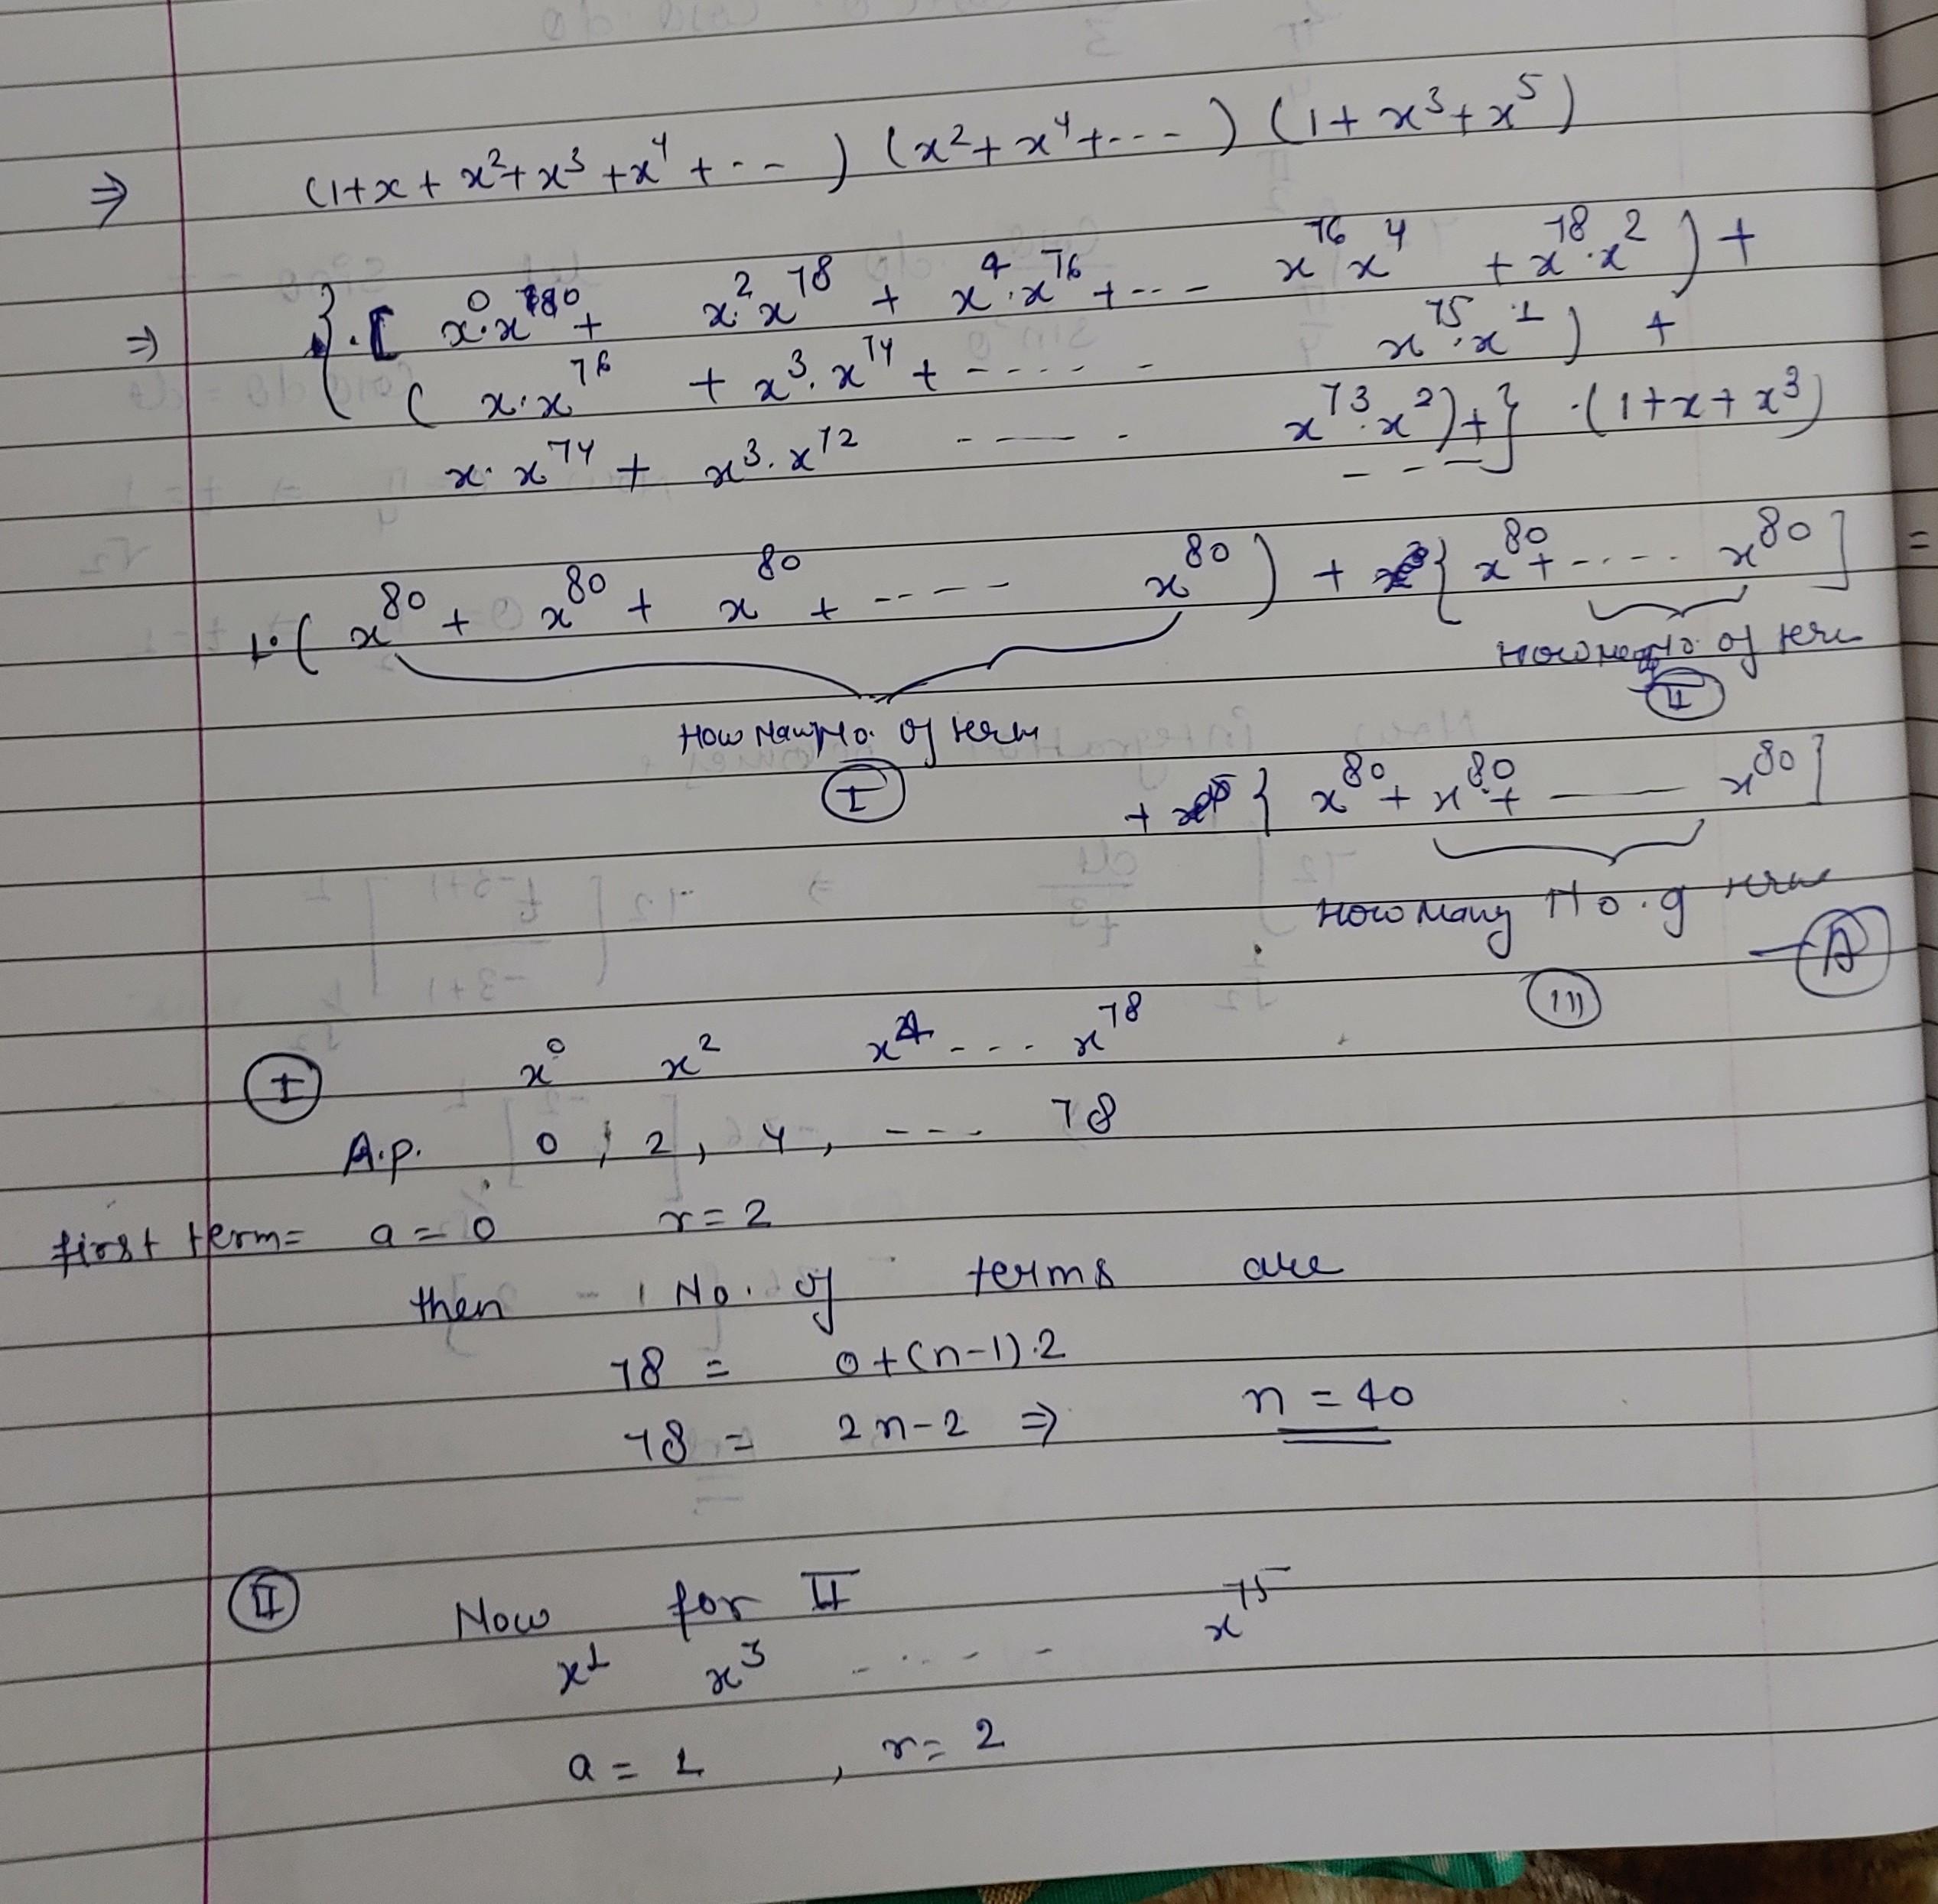 ⇒ (1+x+x²+x³+x⁴+---) (x²+x⁴+---) (1+x³+x⁵)
⇒ {[x⁰·x⁸⁰+ x²·x⁷⁸ + x⁴·x⁷⁶+--- x⁷⁶x⁴ + x⁷⁸·x²) +
(x·x⁷⁶ + x³·x⁷⁴+ ----- x⁷⁵·x¹) +
x·x⁷⁴ + x³·x⁷² ----- x⁷³·x²)+---} ·(1+x+x³)
1·(x⁸⁰ + x⁸⁰ + x⁸⁰ + ----- x⁸⁰) + {x⁸⁰+---- x⁸⁰] =
No. of term
II
How Many No. of term
I
+ {x⁸⁰+ x⁸⁰+ ——— x⁸⁰]
How Many No. of term
III
—A
I x⁰ x² x⁴ --- x⁷⁸
A.p. 0, 2, 4, --- 78
first term= a=0 r=2
then No. of terms are
78 = 0+(n-1).2
78 = 2n-2 ⇒ n=40
II Now for II
x¹ x³ ----- x⁷⁵
a=1, r=2